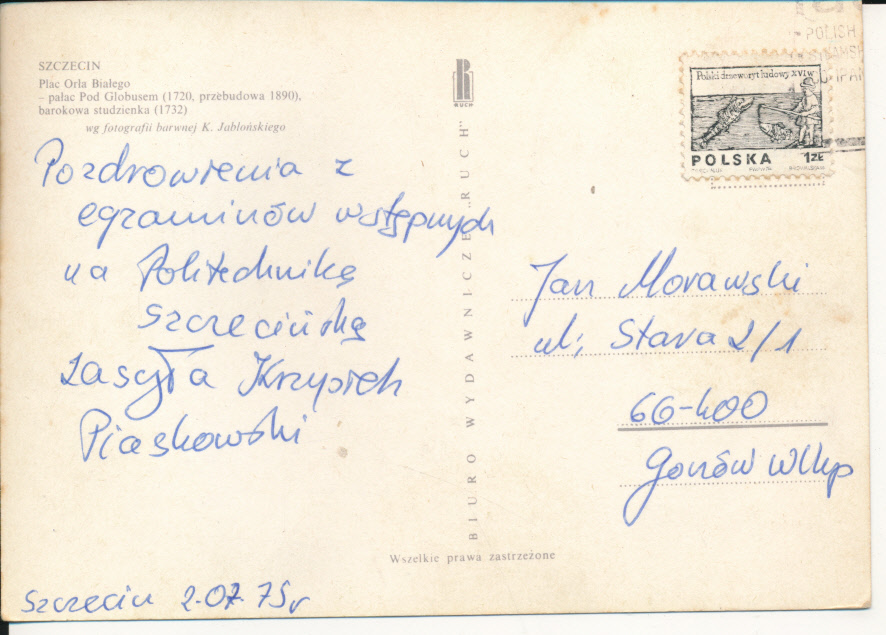 SZCZECIN
Plac Orła Białego
– pałac Pod Globusem (1720, przebudowa 1890),
barokowa studzienka (1732)
wg fotografii barwnej K. Jabłońskiego
Pozdrowienia z
egzaminów wstępnych
na Politechnikę
Szczecińską
zasyła Krzysiek
Piaskowski
Szczecin 2.07.75r
R
RUCH
BIURO WYDAWNICZE „RUCH"
Wszelkie prawa zastrzeżone
POLISH
Polski drzeworyt ludowy XVI w
POLSKA 1ZŁ
Jan Morawski
ul. Stara 2/1
66-400
Gorzów Wlkp